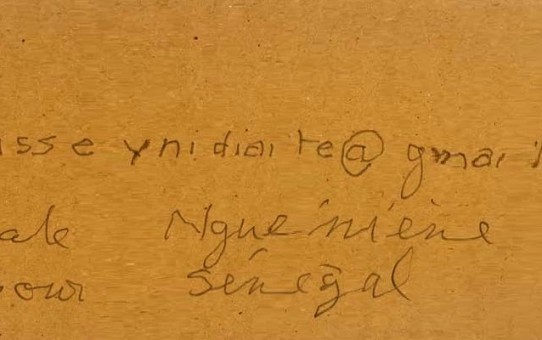 sse ynidiaite@gmai
ale Nguéniène
our Sénégal